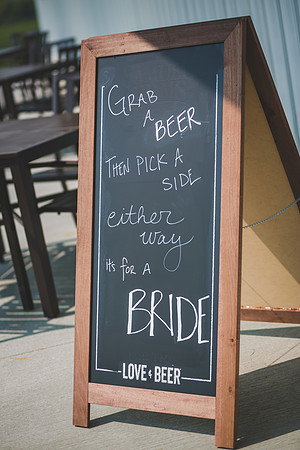 GRAB
A
BEER
THEN PICK A
SIDE
either
way
it's for a
BRIDE
LOVE & BEER